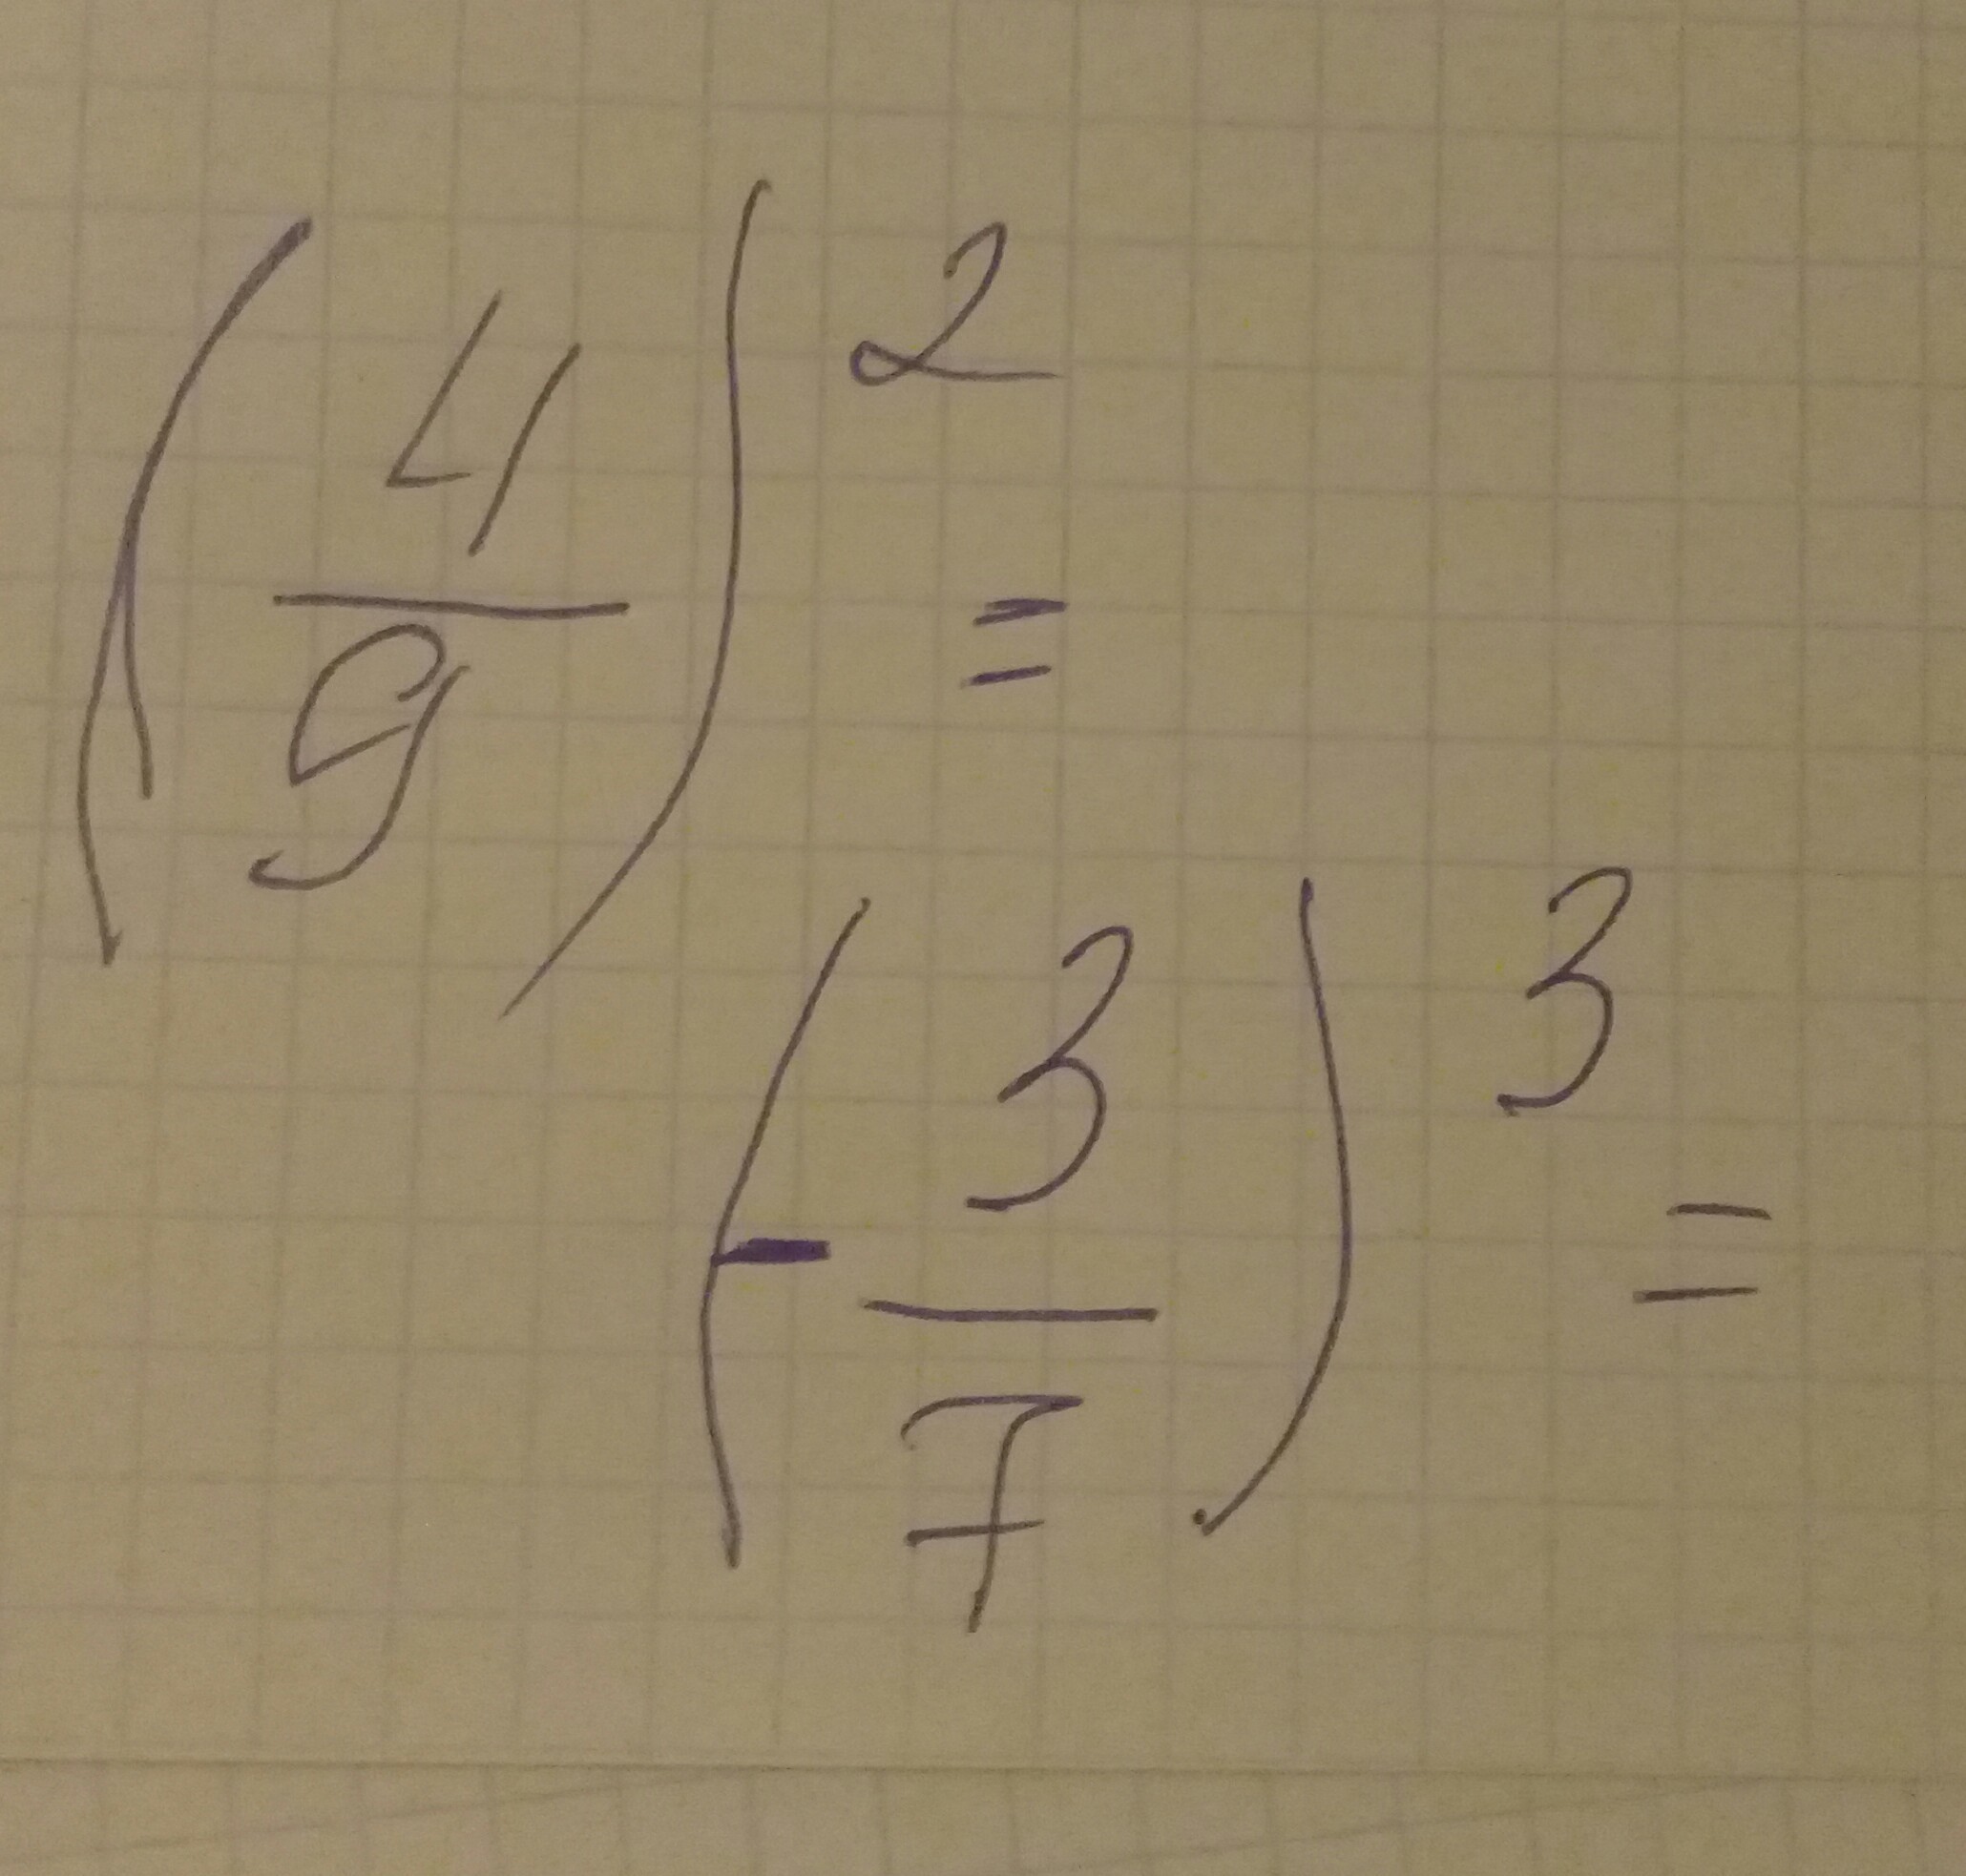 (4/9)² =
(-3/7)³ =